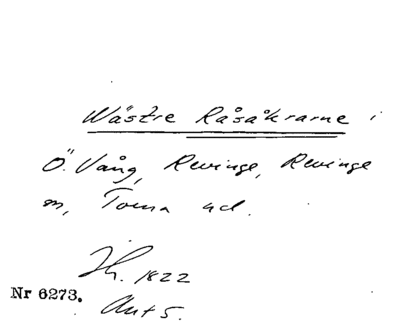 Wästre Råsåkrarne i
Ö. Vång, Revinge, Revinge
sn, Torna hd.
Jh. 1822
Nr 6273.
Akt 5.